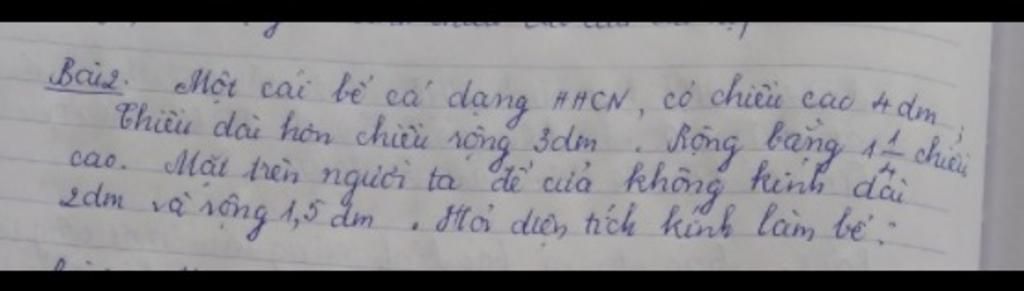 Bài 2. Một cái bể cá dạng HHCN, có chiều cao 4 dm,
Chiều dài hơn chiều rộng 3dm. Rộng bằng 1 1/4 chiều
cao. Mặt trên người ta để cửa không kính dài
2dm và rộng 1,5 dm. Hỏi diện tích kính làm bể.